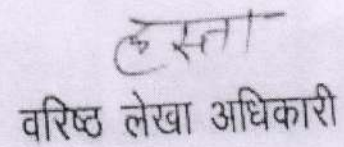 हस्ता
वरिष्ठ लेखा अधिकारी